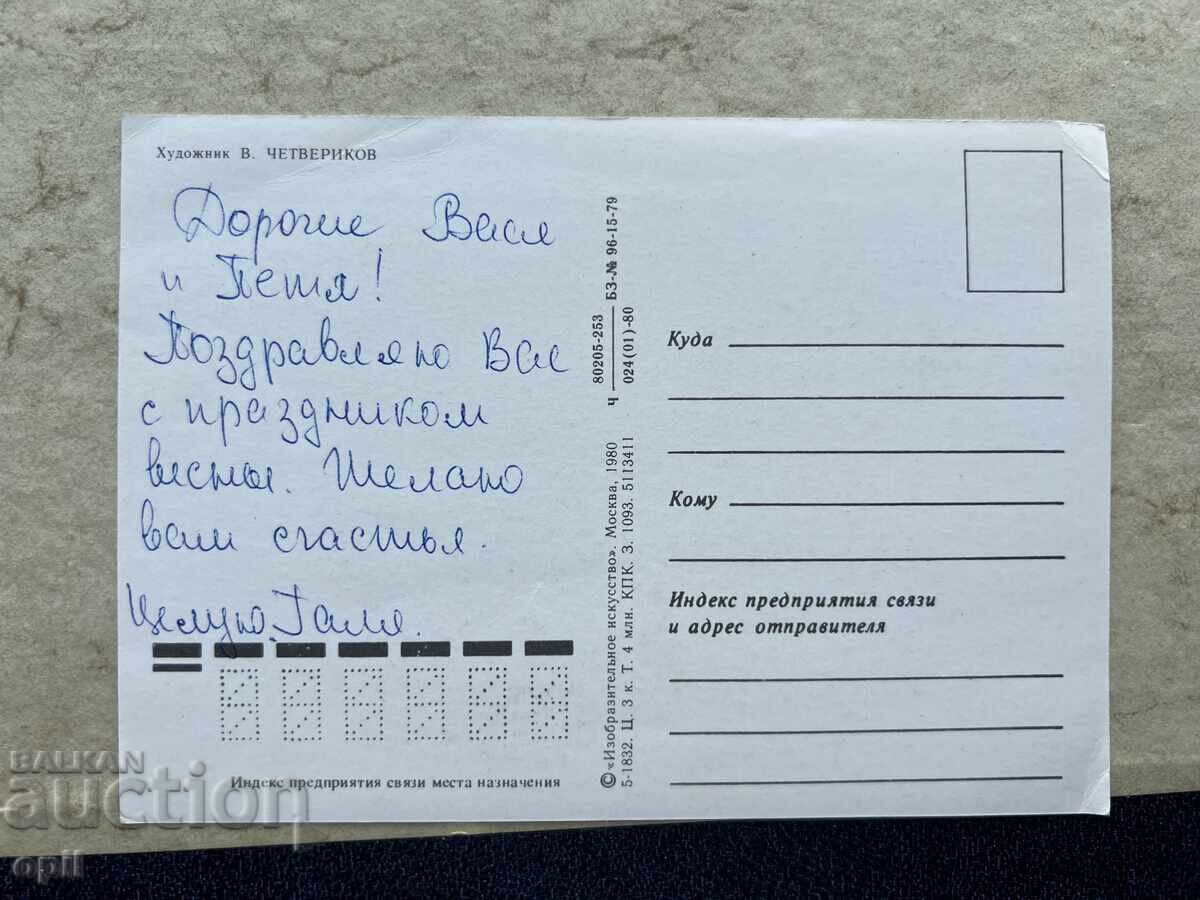 Художник В. ЧЕТВЕРИКОВ
Дорогие Вася
и Петя!
Поздравляю Вас
с праздником
весны. Желаю
вам счастья.
Целую. Галя.
Индекс предприятия связи места назначения
80205-253
Ч
024(01)-80
БЗ-№ 96-15-79
© «Изобразительное искусство». Москва, 1980
5-1832. Ц. 3 к. Т. 4 млн. КПК. З. 1093. 5113411
Куда
Кому
Индекс предприятия связи
и адрес отправителя
BALKAN
auction
opil